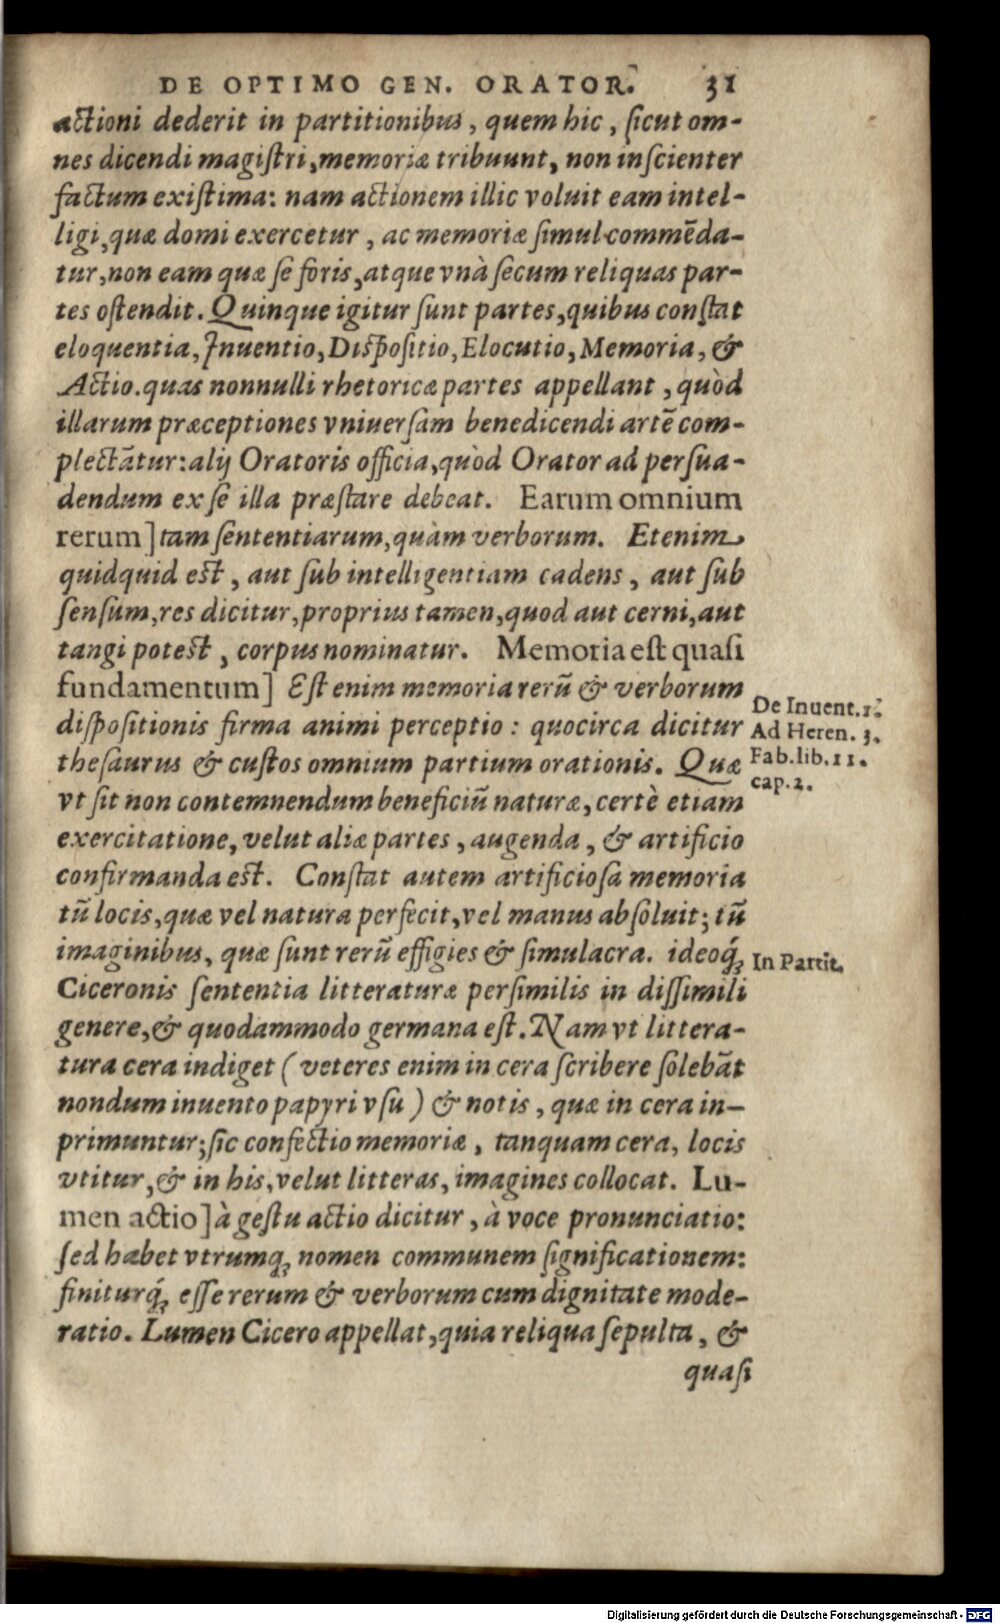 DE OPTIMO GEN. ORATOR. 31
actioni dederit in partitionibus, quem hic, ſicut om-
nes dicendi magiſtri, memoriæ tribuunt, non inſcienter
factum exiſtima: nam actionem illic voluit eam intel-
ligi, quæ domi exercetur, ac memoriæ ſimul commẽda-
tur, non eam quæ ſe foris, atque vnà ſecum reliquas par-
tes oſtendit. Quinque igitur ſunt partes, quibus conſtat
eloquentia, Inuentio, Diſpoſitio, Elocutio, Memoria, &
Actio. quas nonnulli rhetoricæ partes appellant, quòd
illarum præceptiones vniuerſam benedicendi artẽ com-
plectãtur: alij Oratoris officia, quòd Orator ad perſua-
dendum ex ſe illa præſtare debeat. Earum omnium
rerum] tam ſententiarum, quàm verborum. Etenim
quidquid eſt, aut ſub intelligentiam cadens, aut ſub
ſenſum, res dicitur, proprius tamen, quod aut cerni, aut
tangi poteſt, corpus nominatur. Memoria eſt quaſi
fundamentum] Eſt enim memoria rerũ & verborum
diſpoſitionis firma animi perceptio: quocirca dicitur
theſaurus & cuſtos omnium partium orationis. Quæ
vt ſit non contemnendum beneficiũ naturæ, certè etiam
exercitatione, velut aliæ partes, augenda, & artificio
confirmanda eſt. Conſtat autem artificioſa memoria
tũ locis, quæ vel natura perfecit, vel manus abſoluit; tũ
imaginibus, quæ ſunt rerũ effigies & ſimulacra. ideoq́;
Ciceronis ſententia litteraturæ perſimilis in diſſimili
genere, & quodammodo germana eſt. Nam vt littera-
tura cera indiget (veteres enim in cera ſcribere ſolebãt
nondum inuento papyri vſu) & notis, quæ in cera in-
primuntur; ſic confectio memoriæ, tanquam cera, locis
vtitur, & in his, velut litteras, imagines collocat. Lu-
men actio] à geſtu actio dicitur, à voce pronunciatio:
ſed habet vtrumq; nomen communem ſignificationem:
finiturq́; eſſe rerum & verborum cum dignitate mode-
ratio. Lumen Cicero appellat, quia reliqua ſepulta, &
quaſi
De Inuent. 1.
Ad Heren. 3.
Fab. lib. 11.
cap. 2.
In Partit.
Digitalisierung gefördert durch die Deutsche Forschungsgemeinschaft - DFG